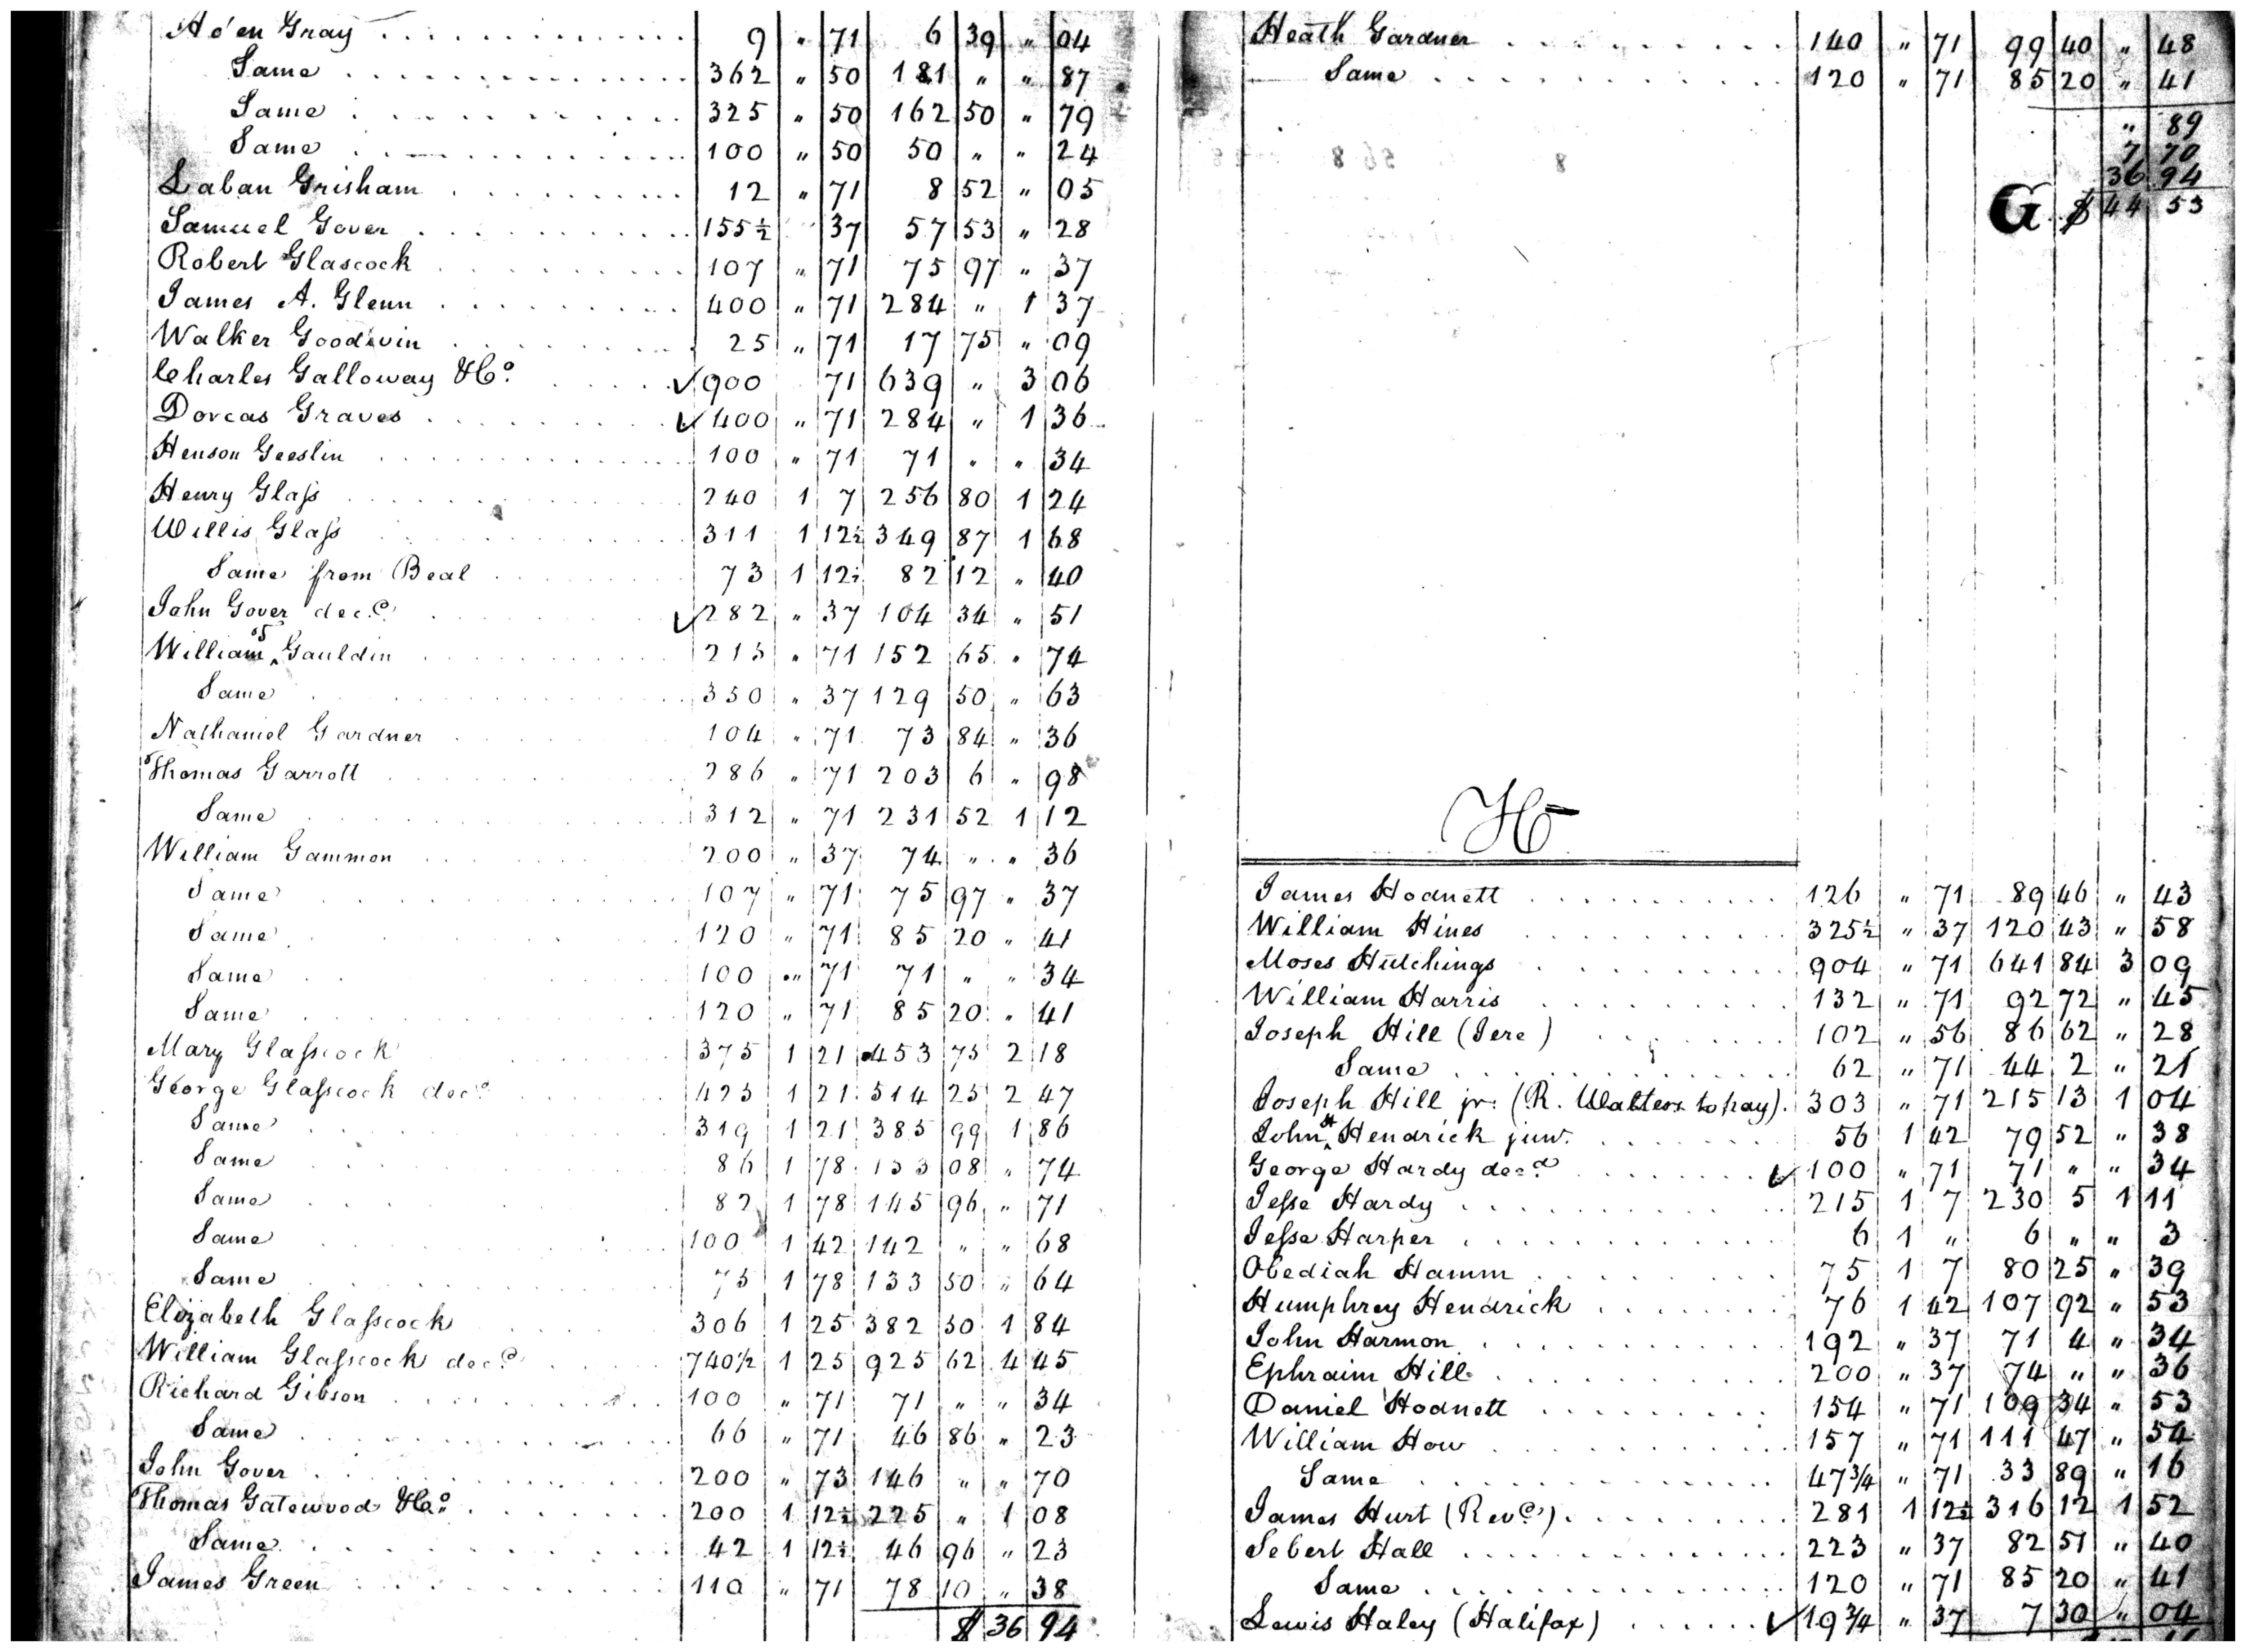 Gray 9 " 71 6 39 " 04
Same 362 " 50 181 " " 87
Same 325 " 50 162 50 " 79
Same 100 " 50 50 " " 24
Laban Grisham 12 " 71 8 52 " 05
Samuel Gover 155½ 37 57 53 " 28
Robert Glascock 107 " 71 75 97 " 37
James A. Glenn 400 " 71 284 " 1 37
Walker Goodwin 25 " 71 17 75 " 09
Charles Galloway &Co. ✓900 71 639 " 3 06
Dorcas Graves ✓400 " 71 284 " 1 36
Henson Geeslin 100 " 71 71 " " 34
Henry Glass 240 1 7 256 80 1 24
Willis Glass 311 1 12½ 349 87 1 68
Same from Beal 73 1 12½ 82 12 " 40
John Gover decd. ✓282 " 37 104 34 " 51
William Gauldin 215 " 71 152 65 " 74
Same 350 " 37 129 50 " 63
Nathaniel Gardner 104 " 71 73 84 " 36
Thomas Garrott 286 " 71 203 6 " 98
Same 312 " 71 231 52 1 12
William Gammon 200 " 37 74 " " 36
Same 107 " 71 75 97 " 37
Same 120 " 71 85 20 " 41
Same 100 " 71 71 " " 34
Same 120 " 71 85 20 " 41
Mary Glasscock 375 1 21 453 75 2 18
George Glasscock decd. 425 1 21 514 25 2 47
Same 319 1 21 385 99 1 86
Same 86 1 78 153 08 " 74
Same 82 1 78 145 96 " 71
Same 100 1 42 142 " " 68
Same 75 1 78 133 50 " 64
Elizabeth Glasscock 306 1 25 382 50 1 84
William Glasscock decd. 740½ 1 25 925 62 4 45
Richard Gibson 100 " 71 71 " " 34
Same 66 " 71 46 86 " 23
John Gover 200 " 73 146 " " 70
Thomas Gatewood &Co. 200 1 12½ 225 " 1 08
Same 42 1 12½ 46 96 " 23
James Green 110 " 71 78 10 " 38
$ 36 94
Heath Gardner 140 " 71 99 40 " 48
Same 120 " 71 85 20 " 41
" 89
7 70
36 94
G $ 44 53
H
James Hodnett 126 " 71 89 46 " 43
William Hines 325½ " 37 120 43 " 58
Moses Hutchings 904 " 71 641 84 3 09
William Harris 132 " 71 92 72 " 45
Joseph Hill (Jere) 102 " 56 86 62 " 28
Same 62 " 71 44 2 " 21
Joseph Hill jr: (R. Walters to pay). 303 " 71 215 13 1 04
John Hendrick junr. 56 1 42 79 52 " 38
George Hardy decd ✓100 " 71 71 " " 34
Jesse Hardy 215 1 7 230 5 1 11
Jesse Harper 6 1 " 6 " " 3
Obediah Hamm 75 1 7 80 25 " 39
Humphrey Hendrick 76 1 42 107 92 " 53
John Harmon 192 " 37 71 4 " 34
Ephraim Hill 200 " 37 74 " " 36
Daniel Hodnett 154 " 71 109 34 " 53
William How 157 " 71 111 47 " 54
Same 47¾ " 71 33 89 " 16
James Hurt (Revd). 281 1 12½ 316 12 1 52
Sebert Hall 223 " 37 82 51 " 40
Same 120 " 71 85 20 " 41
Lewis Haley (Halifax) ✓19¾ " 37 7 30 " 04